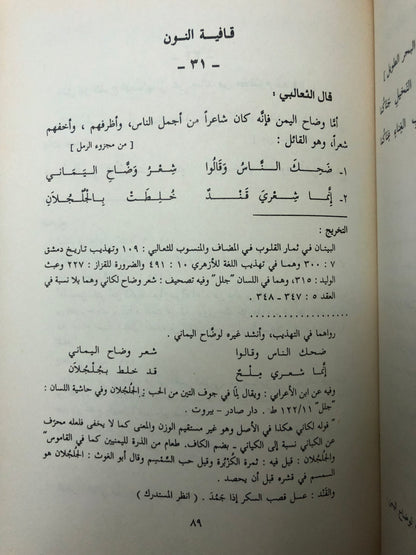 قافية النون
- ٣١ -
قال الثعالبي :
أمّا وضاح اليمن فإنّه كان شاعراً من أجمل الناس، وأظرفهم ، وأخفهم
شعراً، وهو القائل : [ من مجزوء الرمل ]
١ـ ضَحِكَ النَّاسُ وَقَالُوا شِعْرُ وَضَّاحِ اليَمَانِي
٢ـ إِنَّمَا شِعْرِيَ قَنْدٌ خُلِطَتْ بِالْجُلْجُلَانِ
التخريج :
البيتان في ثمار القلوب في المضاف والمنسوب للثعالبي : ١٠٩ وتهذيب تاريخ دمشق
٧ : ٣٠٠ وهما في تهذيب اللغة للأزهري ١٠ : ٤٩١ والضرورة للقزاز : ٢٢٧ وعبث
الوليد : ٣١٥، وهما في اللسان "جلل" وفيه تصحيف : شعر وضاح لكاني وهما بلا نسبة في
العقد ٥ : ٣٤٧ - ٣٤٨ .
رواهما في التهذيب، وأنشد غيره لوضّاح اليماني .
ضحك الناس وقالوا شعر وضاح اليماني
إنّما شعري مِلْحٌ قد خلط بجُلْجلانِ
وفيه عن ابن الأعرابي : ويقال لِمَا في جوف التين من الحب : الجُلْجُلان وفي حاشية اللسان :
"جلل" ١٢٢/١١ ط . دار صادر - بيروت .
" قوله لكاني هكذا في الأصل وهو غير مستقيم الوزن والمعنى كما لا يخفى فلعله محرّف
عن الكباني نسبة إلى الكباني ـ بضم الكاف. طعام من الذرة لليمنيين كما في القاموس"
والجُلْجُلان : قيل فيه : ثمرة الكُزْبُرة وقيل حب السِّمْسِم وقال أبو الغوث: الجُلْجُلان هو
السمسم في قشره قبل أن يحصد .
والقَنْد : عسل قصب السكر إذا جَمُدَ . ( انظر المستدرك )
٨٩
[ البحر الطويل ]